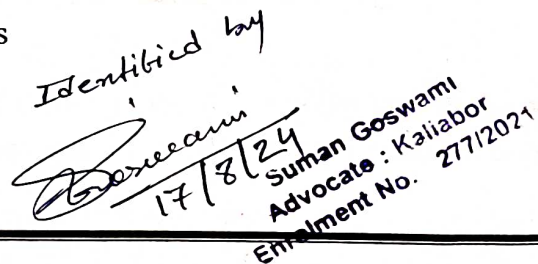 s
Identified by
Goswami
17/8/24
Suman Goswami
Advocate : Kaliabor
Enrolment No. 277/2021